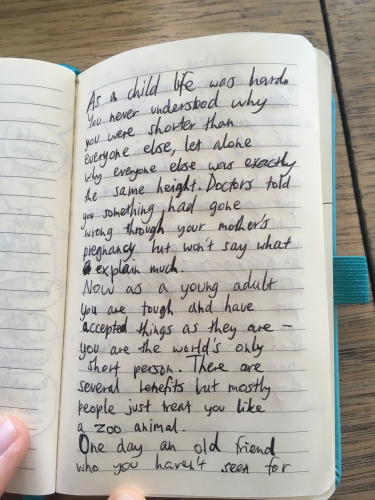 As a child life was hard.
You never understood why
you were shorter than
everyone else, let alone
why everyone else was exactly
the same height. Doctors told
you something had gone
wrong through your mother's
pregnancy but won't say what
explain much.
Now as a young adult
you are tough and have
accepted things as they are –
you are the world's only
short person. There are
several benefits but mostly
people just treat you like
a zoo animal.
One day an old friend
who you haven't seen for